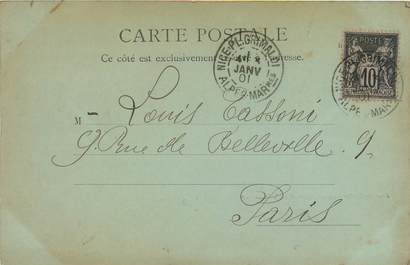 CARTE POSTALE
Ce côté est exclusivement usse.
NICE-PL. GRIMALDI
JANV
01
ALPES-MARMES
POSTES
10
M Louis Cassoni
9 Rue de Belleville 9
Paris